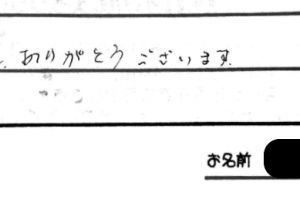 ありがとうございます.
お名前